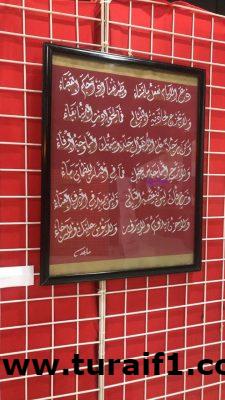 دع الأيام تفعل ما تشاء وطب نفسا إذا حكم القضاء
ولا تجزع لحادثة الليالي فما لحوادث الدنيا بقاء
وكن رجلا على الأهوال جلدا وشيمتك السماحة والوفاء
ولا ترج السماحة من بخيل فما في النار للظمآن ماء
ورزقك ليس ينقصه التأني وليس يزيد في الرزق العناء
ولا حزن يدوم ولا سرور ولا بؤس عليك ولا رخاء
www.turaif1.co